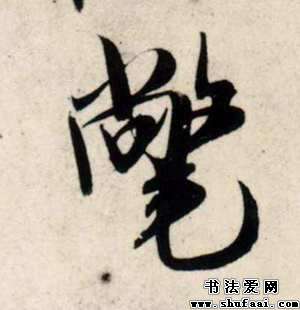 氅
书法爱网
www.shufaai.com